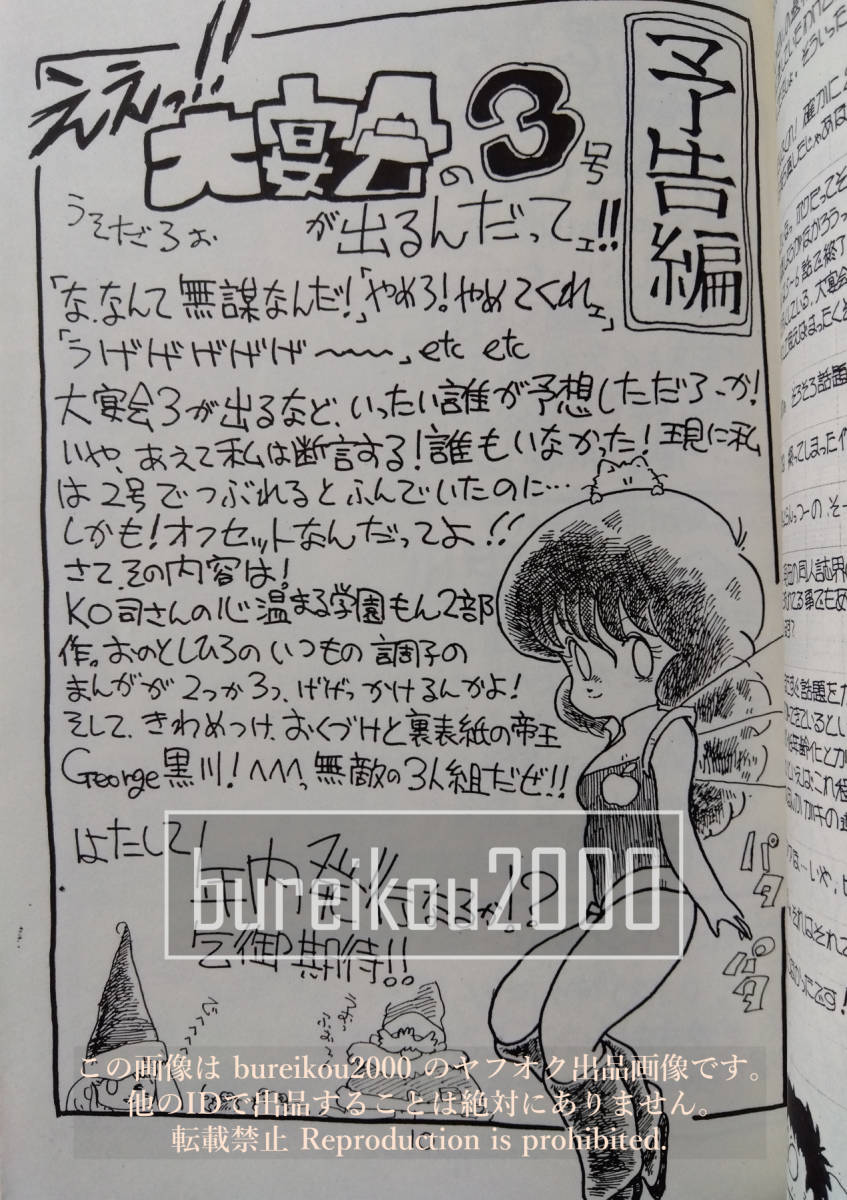 予告編
ええっ!!
大宴会の3号
うそだろぉ が出るんだってェ!!
「な、なんて無謀なんだ!」「やめろ!やめてくれェ」
「うげげげげげ〜〜」etc etc
大宴会3が出るなど、いったい誰が予想しただろーか!
いや、あえて私は断言する!誰もいなかった!現に私
は2号でつぶれるとふんでいたのに…
しかも!オフセットなんだってよ!!
さて、その内容は!
KO司さんの心温まる学園もん2部
作。おのとしひろのいつもの調子の
まんがが2つか3つ、げげっかけるんかよ!
そして、きわめつけ、おくづけと裏表紙の帝王
George黒川!へへへっ、無敵の3人組だぜ!!
はたして!
年内発行なるか!?
乞御期待!!
パタ
パタ
bureikou2000
この画像は bureikou2000 のヤフオク出品画像です。
他のIDで出品することは絶対にありません。
転載禁止 Reproduction is prohibited.